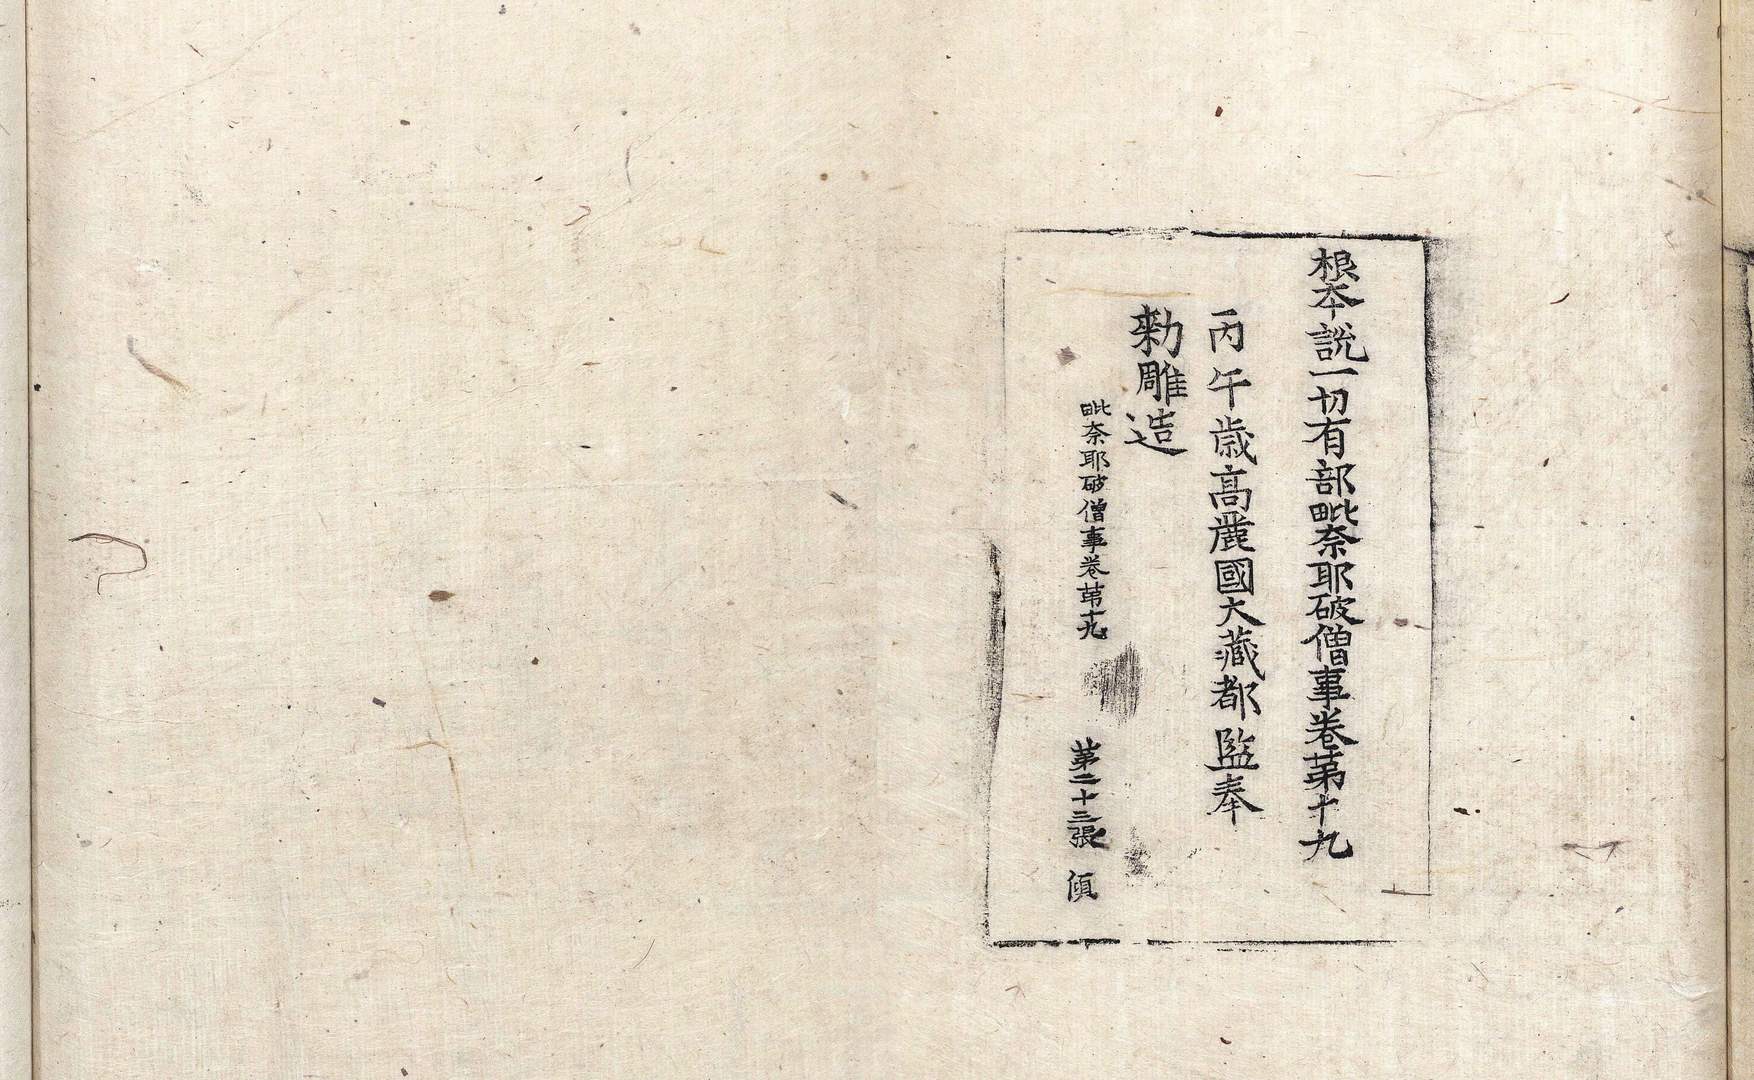 根本說一切有部毗奈耶破僧事卷苐十九
丙午歲高麗國大藏都監奉
勅雕造
毗奈耶破僧事卷苐十九 苐二十三張 傾